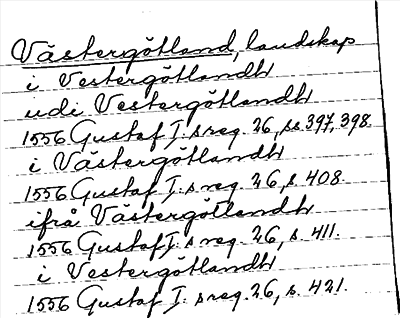 Västergötland, landskap
i Vestergötlandh
udi Vestergötlandh
1556 Gustaf I:s reg. 26, ss. 397, 398.
i Västergötlandh
1556 Gustaf I:s reg. 26, s. 408.
ifrå Västergötlandh
1556 Gustaf I:s reg. 26, s. 411.
i Vestergötlandh
1556 Gustaf I:s reg. 26, s. 421.